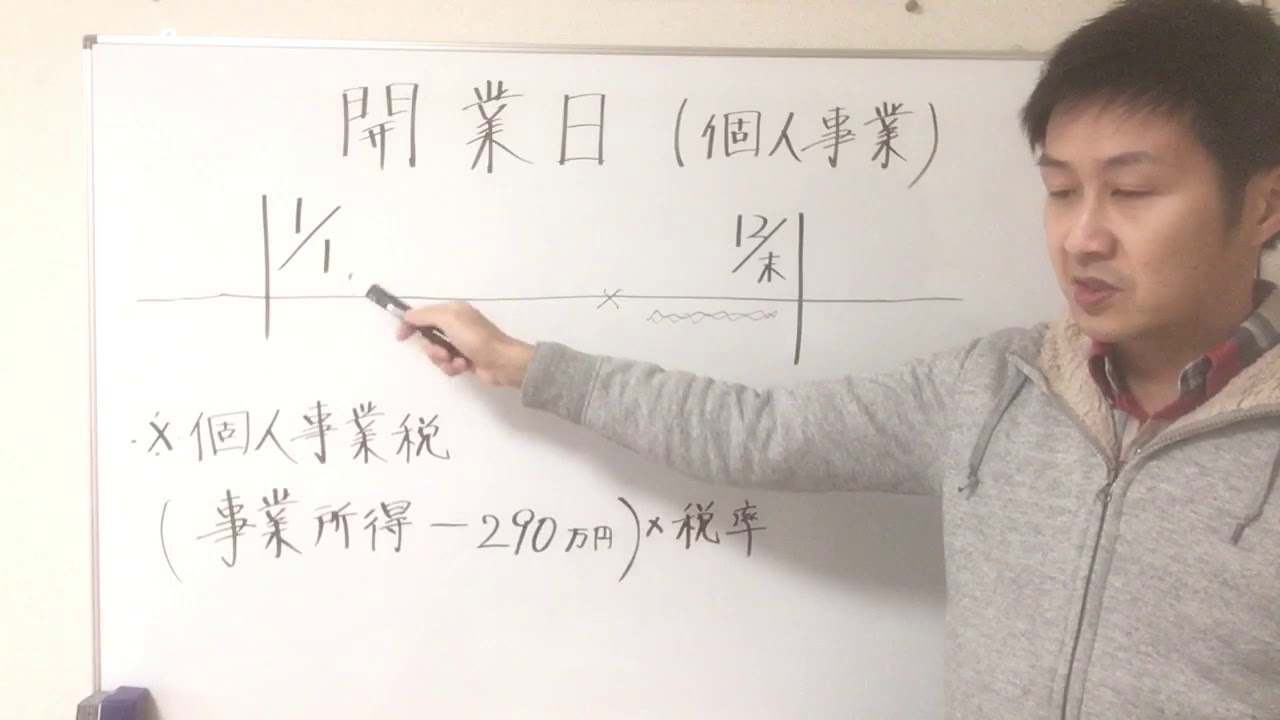 開業日(個人事業)
1/1 12/末
※個人事業税
(事業所得-290万円)×税率